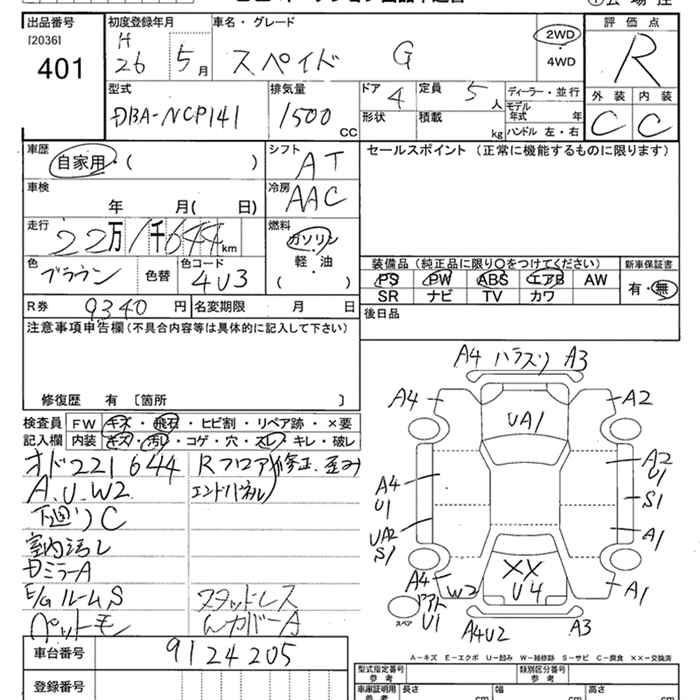 出品番号
[2036]
401
初度登録年月
H 26 5月
車名・グレード
スペイド G
2WD
・
4WD
評価点
R
外装 内装
C C
型式
DBA-NCP141
排気量
1500 CC
ドア 4
形状
定員 5 人
積載 kg
ディーラー・並行
モデル年式 年
ハンドル 左・右
車歴
自家用・( )
シフト
AT
セールスポイント (正常に機能するものに限ります)
車検
年 月( 日)
冷房
AAC
走行
22万1千644km
燃料
ガソリン
軽・油
( )
色
ブラウン
色替
色コード
4U3
装備品 (純正品に限り〇をつけてください)
新車保証書
PS PW ABS エアB AW
SR ナビ TV カワ
有・無
R券 9340 円 名変期限 月 日
後日品
注意事項申告欄 (不具合内容等は具体的に記入して下さい)
修復歴 有 〔箇所 〕
検査員記入欄
FW キズ・飛石・ヒビ割・リペア跡・×要
内装 キズ・汚レ・コゲ・穴・スレ・キレ・破レ
オド221644
A.U.W2
下廻りC
室内汚レ
DミラーA
E/GルームS
ペットモ
Rフロア修正.歪み
エンドパネル
スタッドレス
カバーA
車台番号 9124205
登録番号
A4 ハラスリ A3
A4
A2
UA1
A4
U1
A2
U1
S1
UA2
S1
A1
A4
W2
XX
U4
A1
スペア
U1
A4U2
A3
A-キズ E-エクボ U-凹み W-補修跡 S-サビ C-腐食 ××-交換済
型式指定番号 参考
類別区分番号 参考
車庫証明用 参考
長さ cm
幅 cm
高さ cm